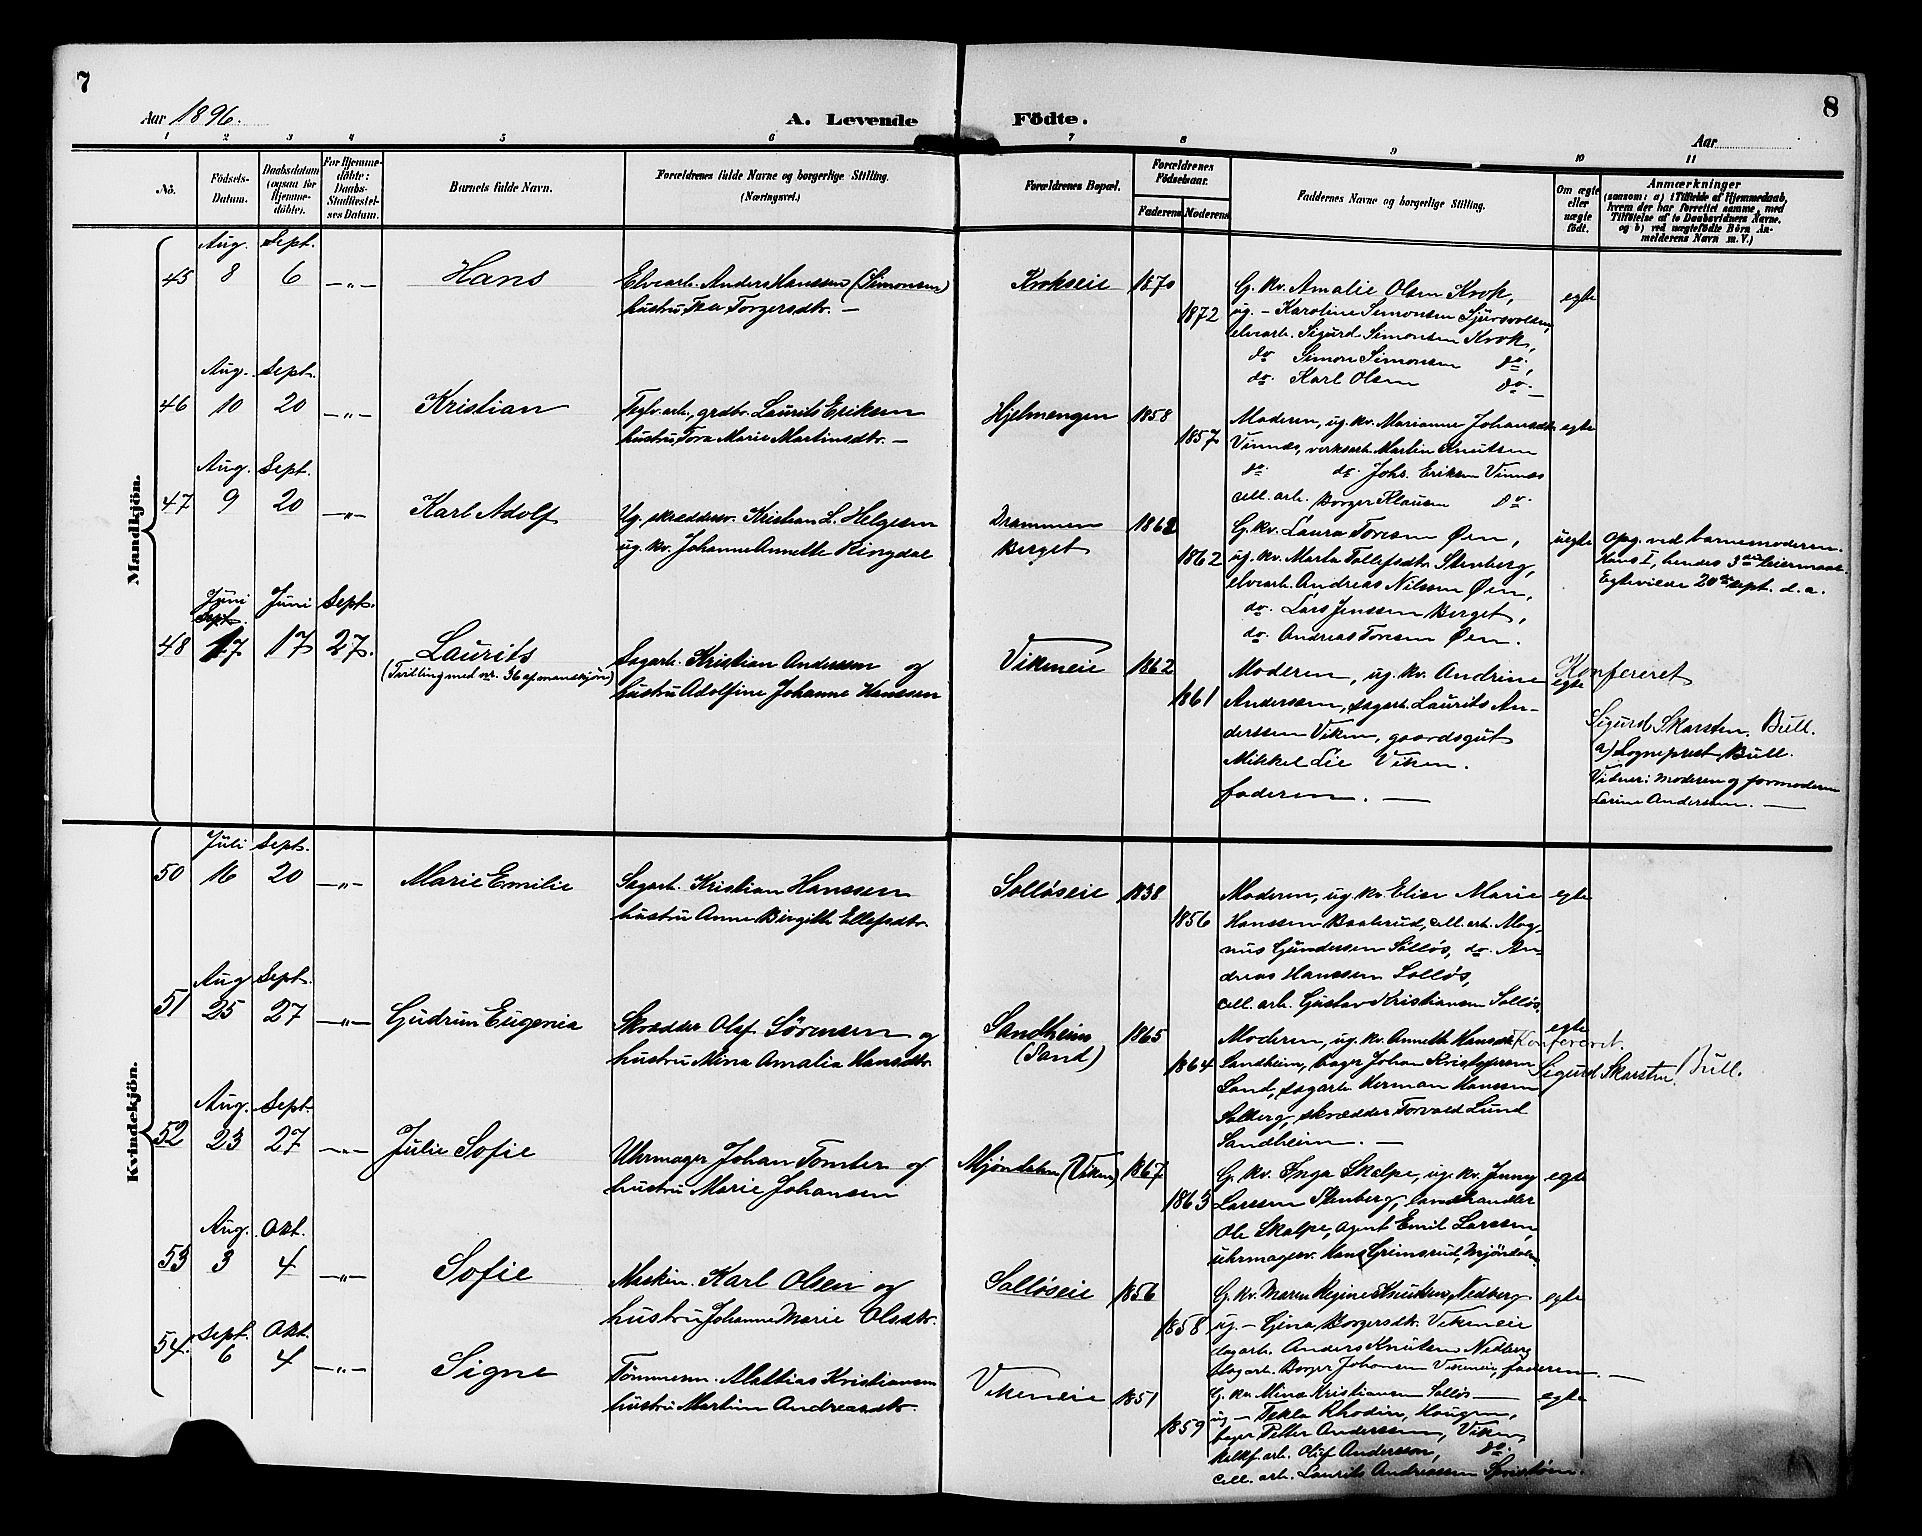 7
8
Aar 1896.
A. Levende Födte.
Aar
1 2 3 4 5 6 7 8 9 10 11
No.
Födsels-Datum.
Daabsdatum (ogsaa for Hjemme-døbte).
For Hjemme-døbte: Daabs-Stadfæstel-ses Datum.
Barnets fulde Navn.
Forældrenes fulde Navne og borgerlige Stilling. (Næringsvei.)
Forældrenes Bopæl.
Forældrenes Födselsaar.
Faderens Moderens
Faddernes Navne og borgerlige Stilling.
Om ægte eller uægte födt.
Anmærkninger
(saasom: a) i Tilfælde af Hjemmedaab,
hvem der har forrettet samme, med
Tilföielse af to Daabsvidners Navne,
og b) ved uægtefödte Börn An-
melderens Navn m. V.)
Mandkjön.
Aug. Sept.
45 8 6 —„— Hans
Elvearb. Anders Hanssen (Simonsen)
hustru Torgersdtr. —
Krokseie 1870
1872
G. kv. Amalie Olsen Krok,
ug. — Karoline Simonsen Sjursvolden,
elvearb. Sigurd Simonsen Krok,
do Simon Simonsen do,
do. Karl Olsen do. —
egte
Aug. Sept.
46 10 20 —„— Kristian
Teglv. arb., grdbr. Laurits Eriksen
hustru Tora Marie Martinsdtr. —
Hjelmengen 1858
1857
Moderen, ug. kv. Marianne Johansdtr.
Vinnæs, verksarb. Martin Knutsen
do. do. Johs. Eriksen Vinnæs
cell. arb. Borger Klausen do.
egte
Aug. Sept.
47 9 20 —„— Karl Adolf
Ug. skræddersv. Kristian L. Helgesen
ug. kv. Johanne Annette Ringdal
Drammen
Berget
1862
1862
G. kv. Laura Toresen Øen,
ug. kv. Marta Tollefsdtr. Stenberg,
elvearb. Andreas Nilssen Øen,
do. Lars Jenssen Berget,
do. Andreas Toresen Øen.
uegte
Opg. ved barnemoderen.
Hans I, hendes 3die leiermaal.
Egteviede 20de sept. d. a.
Juni Juni Sept.
Sept.
48 17 17 27. Laurits
(Tvilling med nr. 36 af mandskjøn)
Sagarb. Kristian Andersen og
hustru Adolfine Johanne Hanssen
Vikeneie 1862
1861
Moderen, ug. kv. Andrine
Anderssen, sagarb. Laurits An-
derssen Viken, gaardsgut
Mikkel Lie Viken.
faderen. —
egte
Konfereret
Sigurd Skarsten. Bull.
a) Sogneprest Bull.
Vidner: moderen og formoderen
Larine Andersen. —
Kvindekjön.
Juli Sept.
50 16 20 —„— Marie Emilie
Sagarb. Kristian Hanssen
hustru Anne Birgitte Ellefsdtr.
Solløseie 1838
1856
Moderen, ug. kv. Elise Marie
Hanssen Baaserud, cell. arb. Mag-
nus Gundersen Solløs, do. An-
dreas Hanssen Solløs,
cell. arb. Gustav Kristiansen Solløs.
egte
Aug Sept.
51 25 27 —„— Gudrun Eugenia
Skrædder Olaf Sørensen og
hustru Mina Amalia Hansdtr.
Sandheim
(Sand)
1865
1864
Moderen, ug. kv. Anneth Hansdtr.
Sandheim, bager Johan Kristofersen
Sand, sagarb. Herman Hanssen
Solberg, skrædder Torvald Lund
Sandheim. —
egte
Konfereret.
Sigurd Skarsten. Bull.
Aug. Sept.
52 23 27 —„— Julie Sofie
Uhrmager Johan Tomter og
hustru Marie Johansen
Mjøndalen (Viken) 1867
1863
G. kv. Inga Skalpe, ug. kv. Jenny
Larssen Stenberg, landhandler
Ole Skalpe, agent Emil Larssen,
uhrmagersv. Hans Grimsrud, Mjøndalen
egte
Aug. Okt.
53 3 4 —„— Sofie
Maskin. Karl Olsen og
hustru Johanne Marie Olsdtr.
Solløseie 1856
1858
G. kv. Maren Regine Knutsen, Nedberg
ug. — Gina Borgersdtr. Vikeneie
dagarb. Anders Knutsen Nedberg
dagarb. Borger Johansen Vikeneie, faderen. —
egte
Sept. Okt.
54. 6 4 —„— Signe
Tømmerm. Mathias Kristiansen
hustru Martine Andreasdtr.
Vikeneie 1851
1859
G. kv. Mina Kristiansen Solløs —
ug. — Tekla Rhodin, Haugen,
bager Petter Anderssen, Viken,
kalkf. arb. Oluf Andersson, do.
cell. arb. Laurits Andreassen
egte